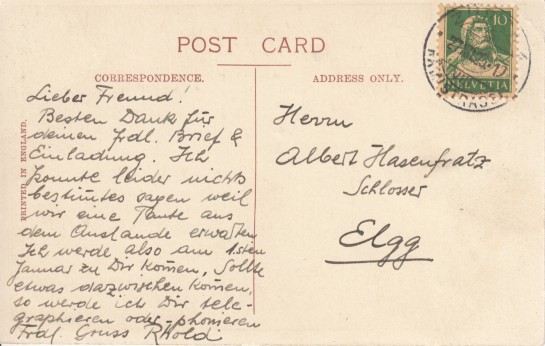 POST CARD
CORRESPONDENCE.
Lieber Freund!
Besten Dank für
deinen frdl. Brief &
Einladung. Ich
konnte leider nichts
bestimtes sagen weil
wir eine Tante aus
dem Auslande erwarten
Ich werde also am 1.sten
Januar zu Dir komen, Sollte
etwas dazwischen komen,
so werde ich Dir tele-
graphieren oder -phonieren
Frdl. Gruss
PRINTED IN ENGLAND.
ADDRESS ONLY.
Herrn
Albert Hasenfratz
Schlosser
Elgg
10
HELVETIA